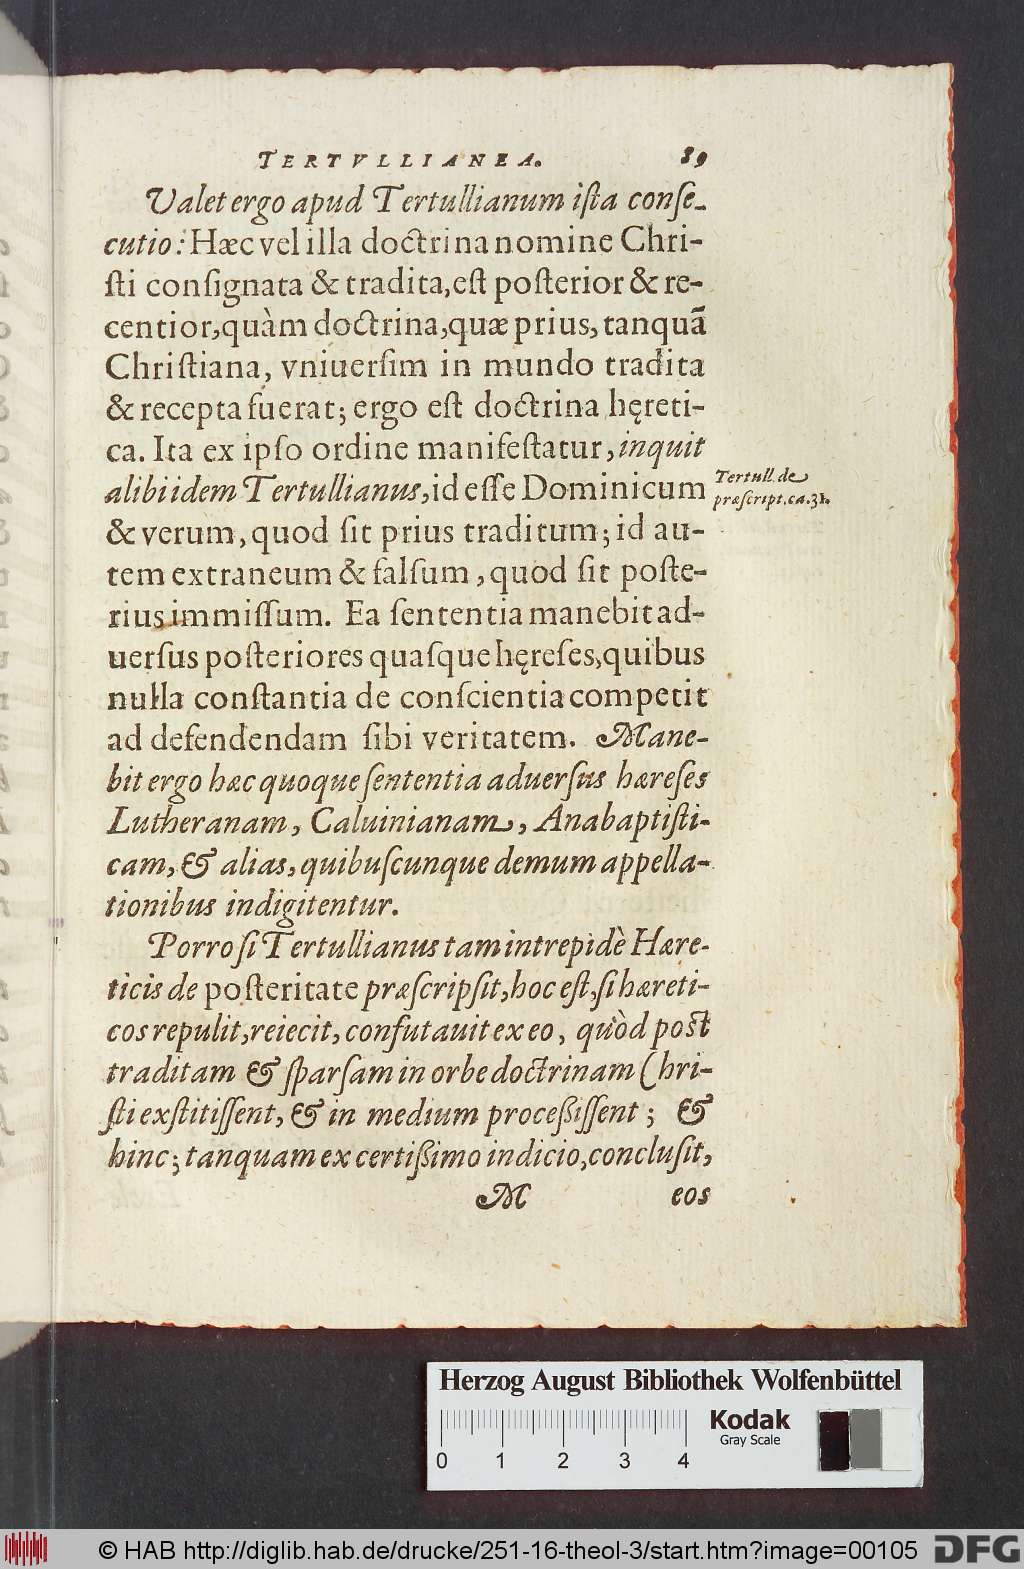 TERTVLLIANEA. 89
Valet ergo apud Tertullianum iſta conſe-
cutio: Hæc vel illa doctrina nomine Chri-
ſti conſignata & tradita, eſt poſterior & re-
centior, quàm doctrina, quæ prius, tanquã
Chriſtiana, vniuerſim in mundo tradita
& recepta fuerat; ergo eſt doctrina hęreti-
ca. Ita ex ipſo ordine manifeſtatur, inquit
alibi idem Tertullianus, id eſſe Dominicum
Tertull. de
præſcript. ca. 31.
& verum, quod ſit prius traditum; id au-
tem extraneum & falſum, quod ſit poſte-
rius immiſſum. Ea ſententia manebit ad-
uerſus poſteriores quaſque hęreſes, quibus
nulla conſtantia de conſcientia competit
ad defendendam ſibi veritatem. Mane-
bit ergo hæc quoque ſententia aduerſus hæreſes
Lutheranam, Caluinianam, Anabaptiſti-
cam, & alias, quibuſcunque demum appella-
tionibus indigitentur.
Porro ſi Tertullianus tam intrepidè Hære-
ticis de poſteritate præſcripſit, hoc eſt, ſi hæreti-
cos repulit, reiecit, confutauit ex eo, quòd poſt
traditam & ſparſam in orbe doctrinam Chri-
ſti exſtitiſſent, & in medium proceßiſſent; &
hinc; tanquam ex certißimo indicio, concluſit,
M eos
Herzog August Bibliothek Wolfenbüttel
0 1 2 3 4
Kodak
Gray Scale
© HAB http://diglib.hab.de/drucke/251-16-theol-3/start.htm?image=00105
DFG